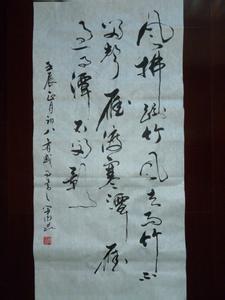 风拂疏竹风去而竹不
留声雁度寒潭雁
过而潭不留影
壬辰正月初八